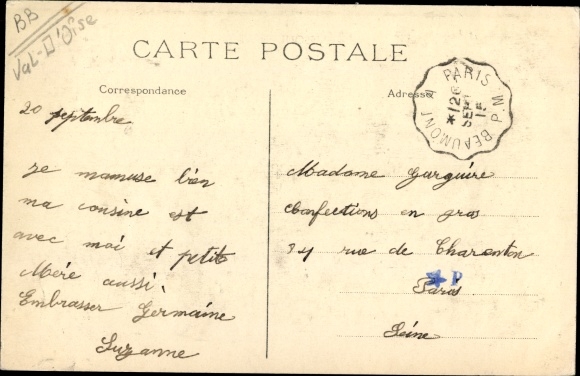 BB
Val-D'Oise
CARTE POSTALE
Correspondance
Adresse
PARIS
SEPT
BEAUMONT
P.M.
20 septembre
Je mamuse bien
ma cousine est
avec moi et petite
Mére aussi.
Embrasser Germaine
Suzanne
Madame Garguire
Confections en gros
34 rue de Charenton
Paris
P
Seine